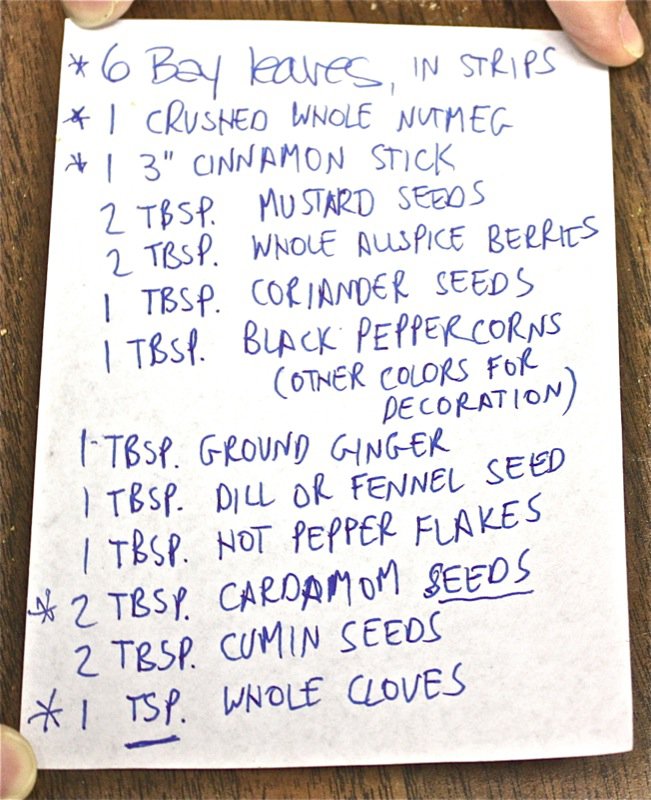 * 6 Bay leaves, IN STRIPS
* 1 CRUSHED WHOLE NUTMEG
* 1 3" CINNAMON STICK
2 TBSP. MUSTARD SEEDS
2 TBSP. WHOLE ALLSPICE BERRIES
1 TBSP. CORIANDER SEEDS
1 TBSP. BLACK PEPPERCORNS
(OTHER COLORS FOR
DECORATION)
1 TBSP. GROUND GINGER
1 TBSP. DILL OR FENNEL SEED
1 TBSP. HOT PEPPER FLAKES
* 2 TBSP. CARDAMOM SEEDS
2 TBSP. CUMIN SEEDS
* 1 TSP. WHOLE CLOVES